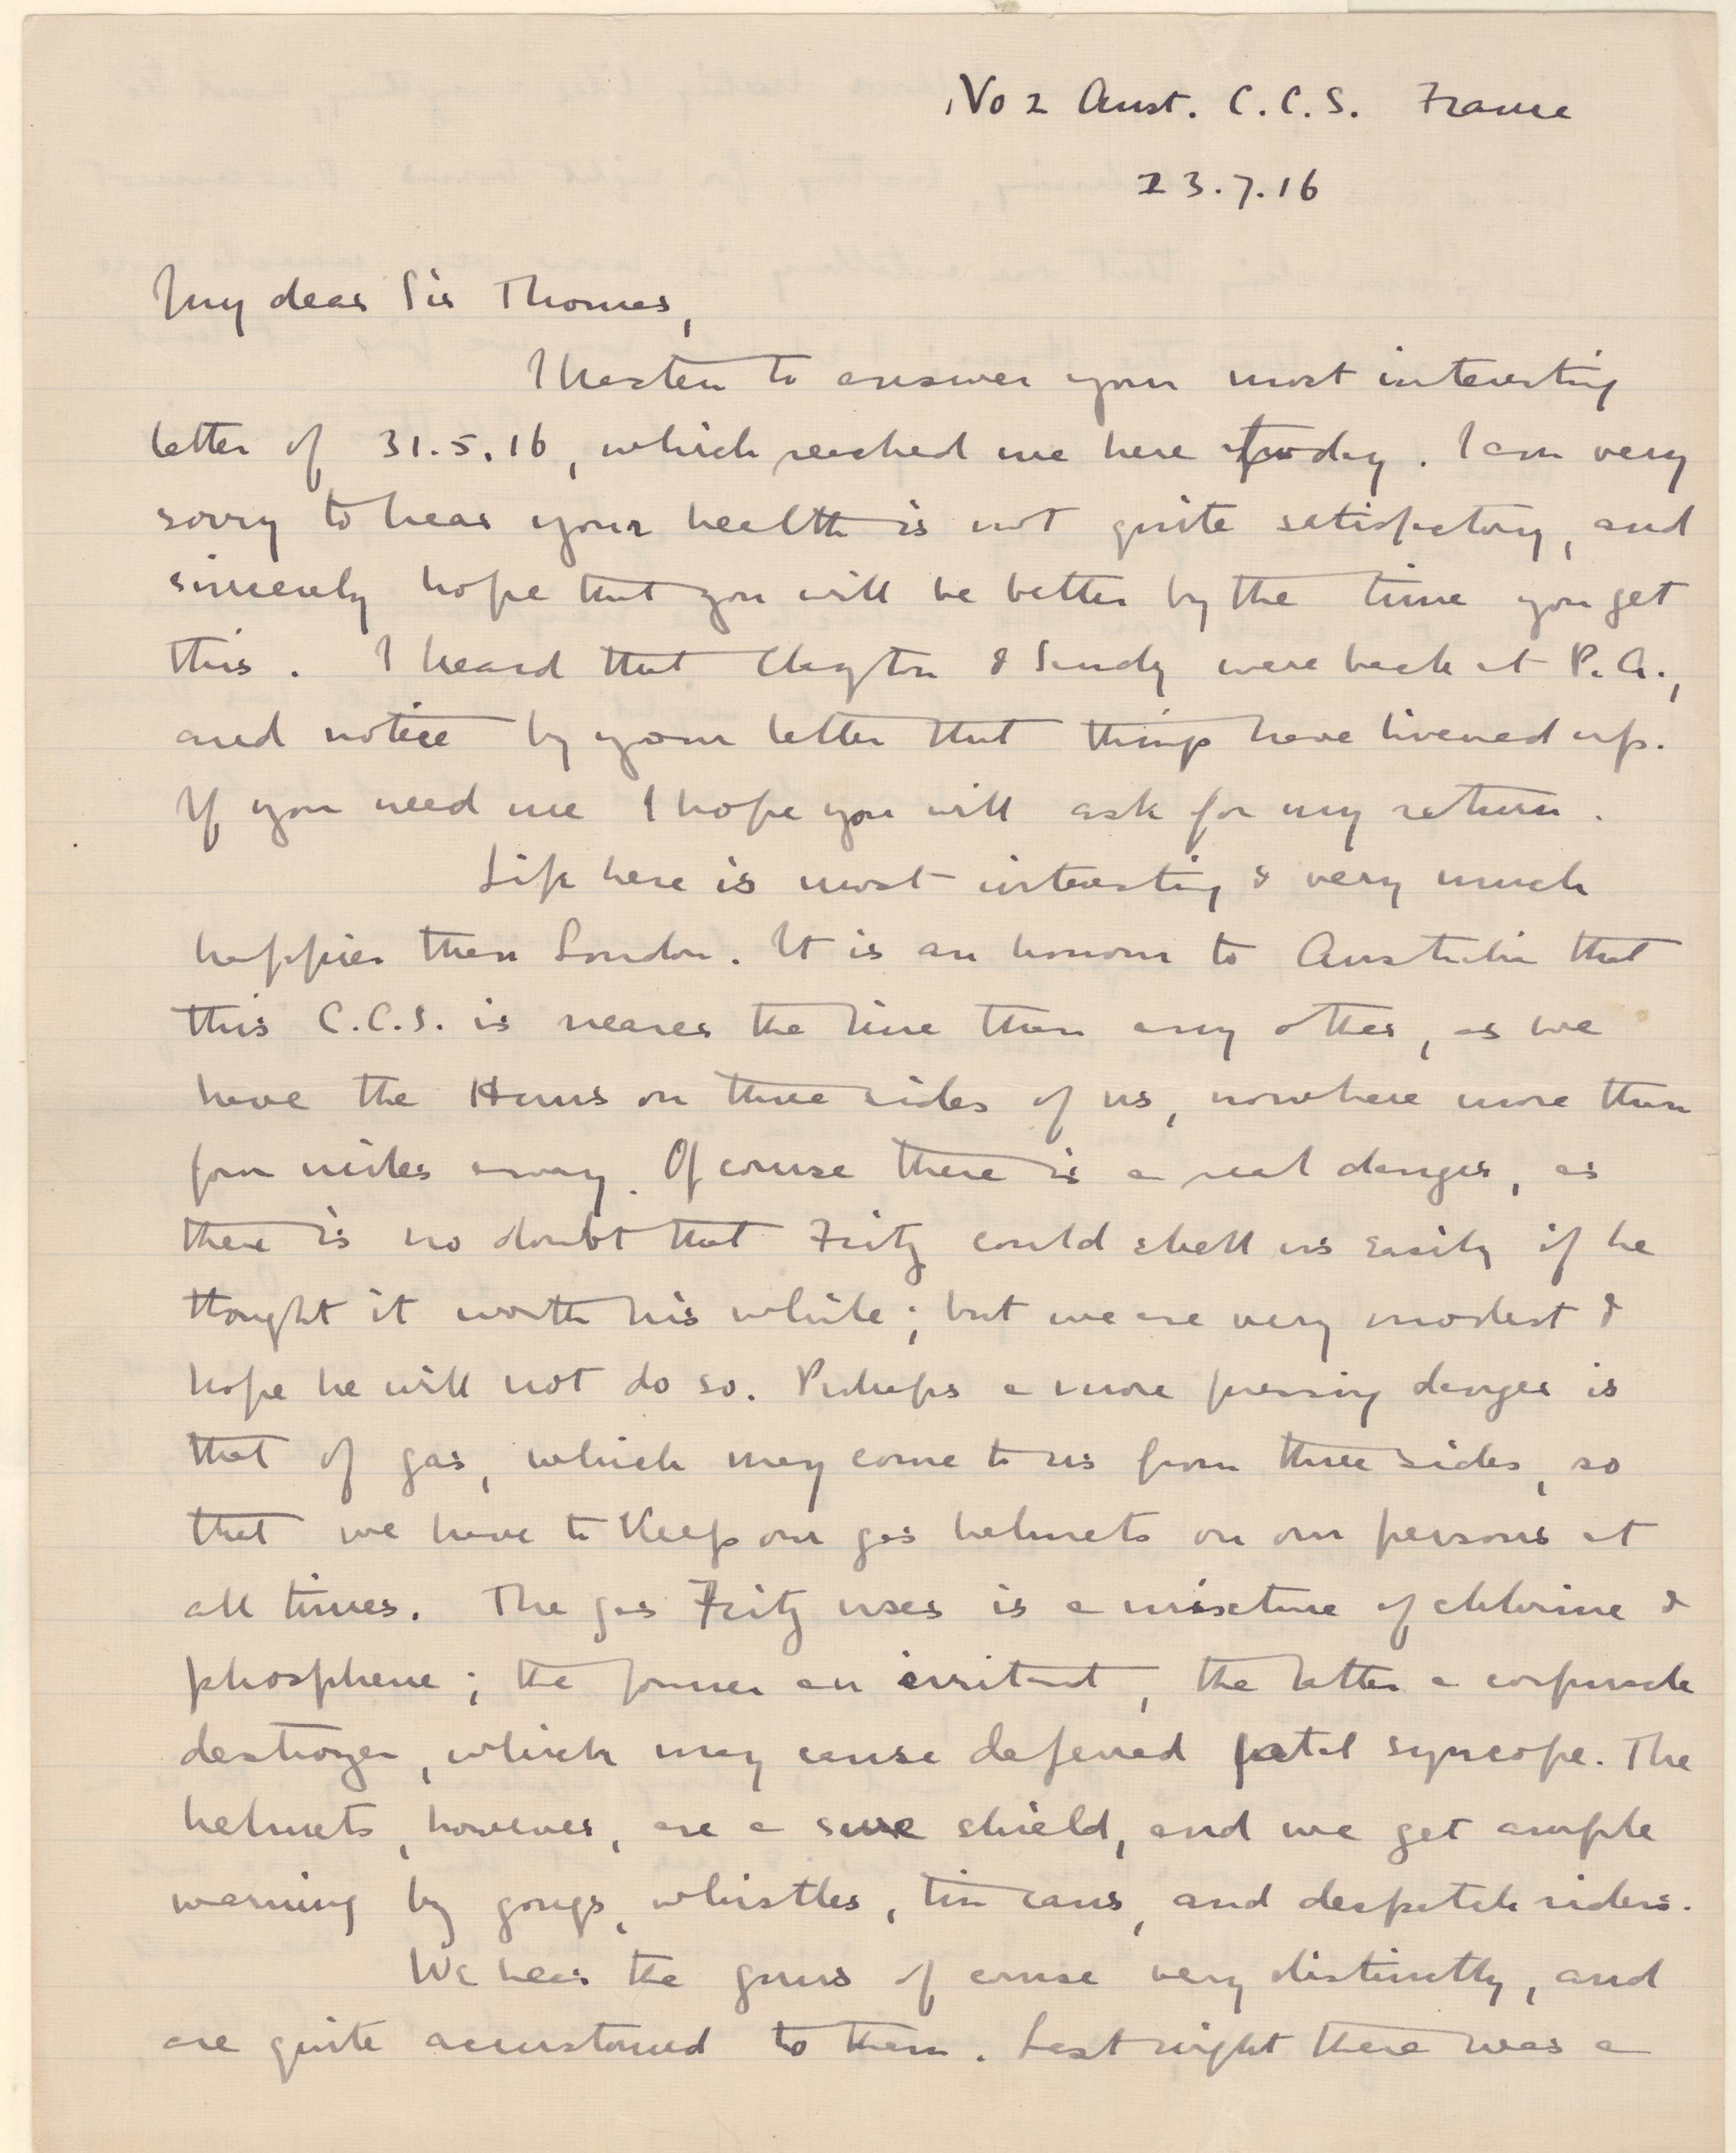 No 2 Aust. C.C.S. France
23.7.16
My dear Sir Thomas,
I hasten to answer your most interesting
letter of 31.5.16, which reached me here today. I am very
sorry to hear your health is not quite satisfactory, and
sincerely hope that you will be better by the time you get
this. I heard that Clayton & Sandy were back at P.A.,
and notice by your letter that things have livened up.
If you need me I hope you will ask for my return.
Life here is most interesting & very much
happier than London. It is an honour to Australia that
this C.C.S. is nearer the line than any other, as we
have the Huns on three sides of us, nowhere more than
four miles away. Of course there is a real danger, as
there is no doubt that Fritz could shell us easily if he
thought it worth his while; but we are very modest &
hope he will not do so. Perhaps a more pressing danger is
that of gas, which may come to us from three sides, so
that we have to keep our gas helmets on our persons at
all times. The gas Fritz uses is a mixture of chlorine &
phosphene; the former an irritant, the latter a corpuscle
destroyer, which may cause deferred fatal syncope. The
helmets, however, are a sure shield, and we get ample
warning by gongs, whistles, tin cans, and despatch riders.
We hear the guns of course very distinctly, and
are quite accustomed to them. Last night there was a